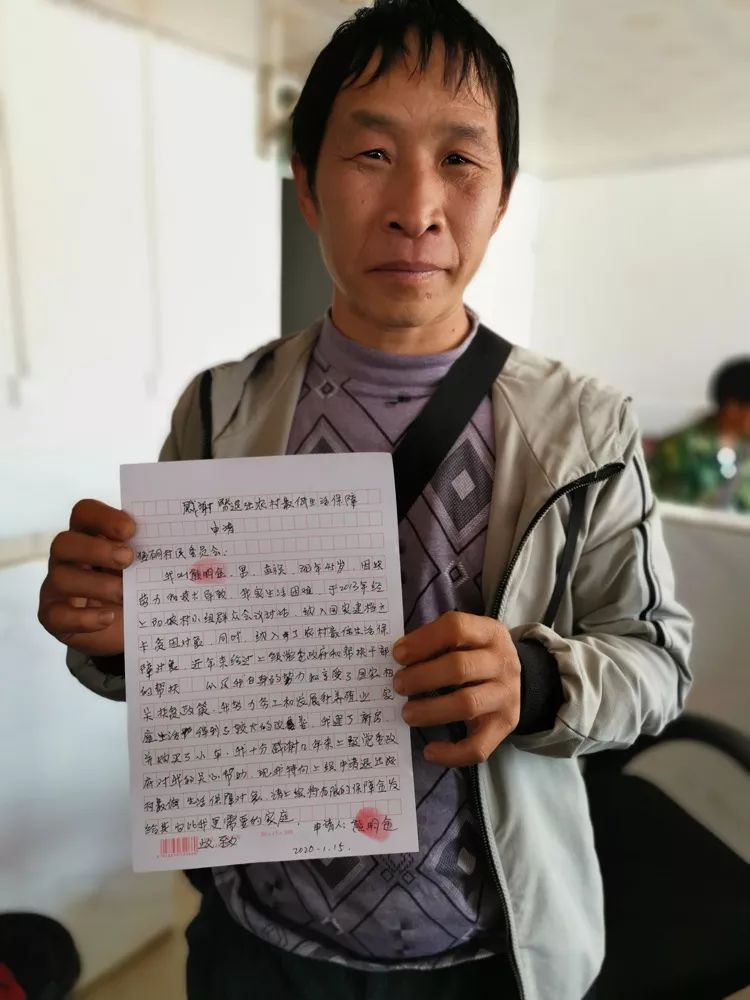 感谢暨退出农村最低生活保障
申请
村民委员会:
我叫熊明金,男,苗族,现年45岁,因缺
劳力和技术导致,我家生活困难,于2013年经
上 坡村小组群众会议讨论,纳入国家建档立
卡贫困对象,同时,纳入了农村最低生活保
障对象,近年来经过上级党委政府和帮扶干部
的帮扶 以及我自身的努力和享受了国家相
关扶贫政策,我努力务工和发展种养殖业,家
庭生活 得到了较大的改善,我建了新房
并购买了小车,我十分感谢几年来上级党委政
府对我的关心帮助,现我特向上级申请退出农
村最低生活保障对象,请上级将有限的保障金发
给其它比我更需要的家庭。
申请人:熊明金
此致
2020.1.15.